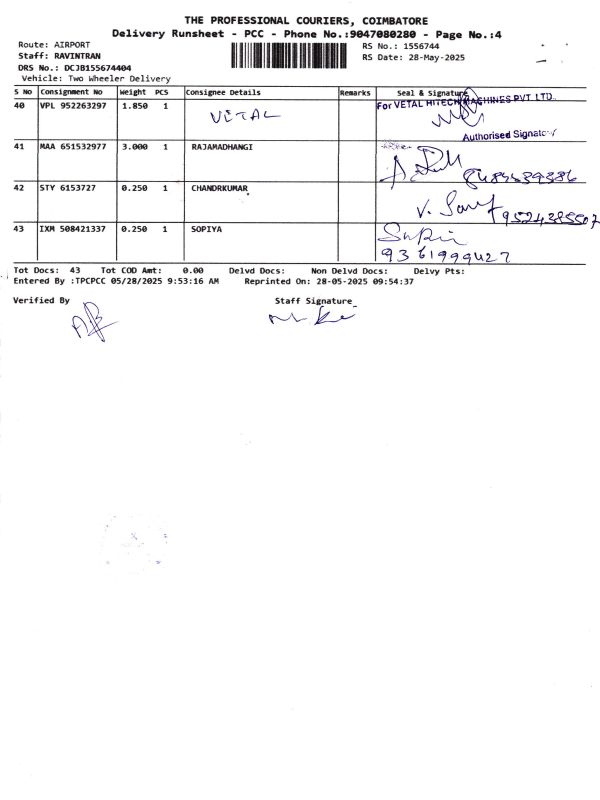 THE PROFESSIONAL COURIERS, COIMBATORE
Delivery Runsheet - PCC - Phone No.:9047080280 - Page No.:4
Route: AIRPORT RS No.: 1556744
Staff: RAVINTRAN RS Date: 28-May-2025
DRS No.: DCJB155674404
Vehicle: Two Wheeler Delivery
S No Consignment No Weight PCS Consignee Details Remarks Seal & Signature
40 VPL 952263297 1.850 1 VETAL For VETAL HITECH MACHINES PVT LTD.
Authorised Signatory
41 MAA 651532977 3.000 1 RAJAMADHANGI
8489439386
42 STY 6153727 0.250 1 CHANDRKUMAR
V. 9524385507
43 IXM 508421337 0.250 1 SOPIYA
9361999427
Tot Docs: 43 Tot COD Amt: 0.00 Delvd Docs: Non Delvd Docs: Delvy Pts:
Entered By :TPCPCC 05/28/2025 9:53:16 AM Reprinted On: 28-05-2025 09:54:37
Verified By Staff Signature